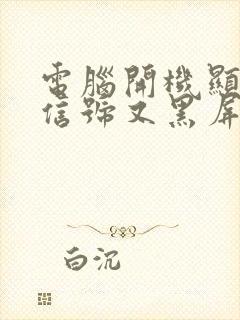 電腦開機顯
信號又黑屏
白沉